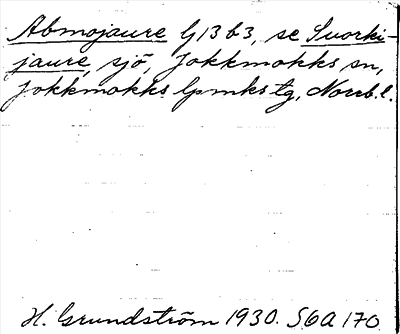 Abmojaure G13b3, se Suorki-
jaure, sjö, Jokkmokks sn,
Jokkmokks lpmks tg, Norrb. l.
H. Grundström 1930. S6A 170